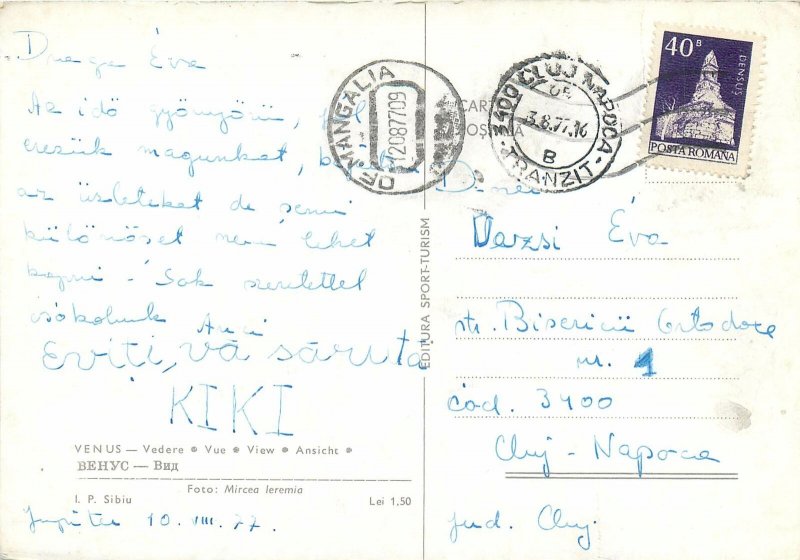 Draga Éva
Az idő gyönyörű, jól
erezük magunkat,
az üzleteket de semi
külömöset nem lehet
kapni - Sok szeretettel
csókolunk Anci
Eviți, vă sărută
KIKI
VENUS — Vedere • Vue • View • Ansicht •
ВЕНУС — Вид
Foto: Mircea Ieremia
I. P. Sibiu Lei 1,50
Jupiter 10. VIII. 77.
EDITURA SPORT-TURISM
OF. MANGALIA
12087709
CARTE
POȘTALĂ
3400 CLUJ NAPOCA
3.8.77.16
B
TRANZIT
40B
DENSUȘ
POSTA ROMANA
Darzsi Éva
str. Bisericii Ortodoxe
nr. 1
cod. 3400
Cluj - Napoca
jud. Cluj.